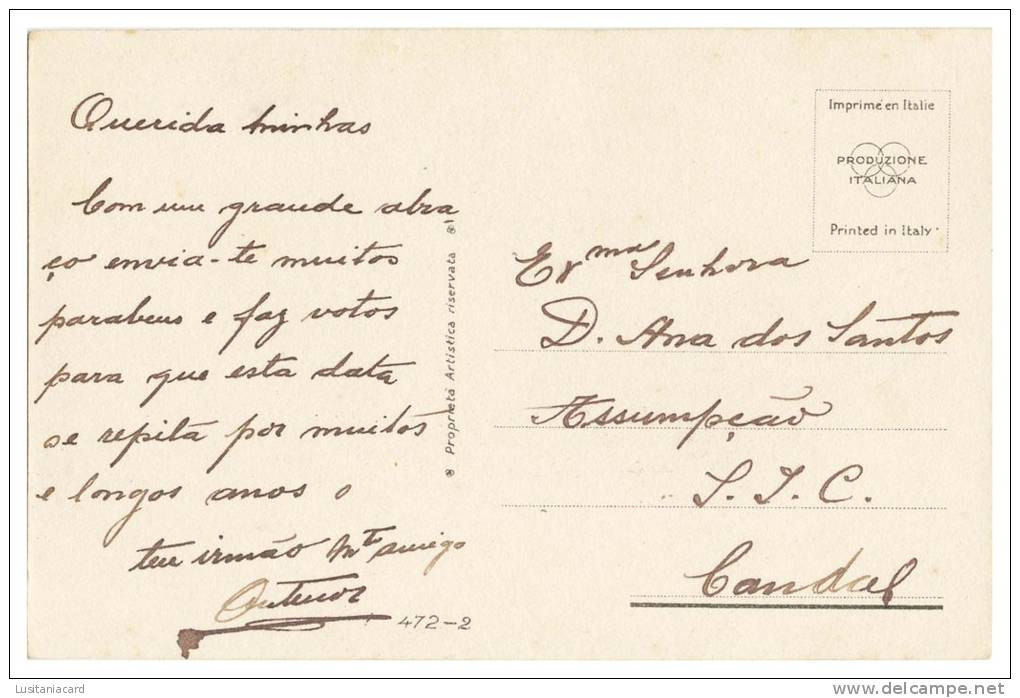 Querida
Com um grande abra
ço envia-te muitos
parabens e faz votos
para que esta data
se repita por muitos
e longos anos o
teu irmão Mto amigo
Antenor
472-2
® Proprietà Artistica riservata ®
Imprimé en Italie
PRODUZIONE
ITALIANA
Printed in Italy
Exma Senhora
D. Ana dos Santos
Assumpção
S. I. C.
Candal
Lusitaniacard
www.delcampe.net